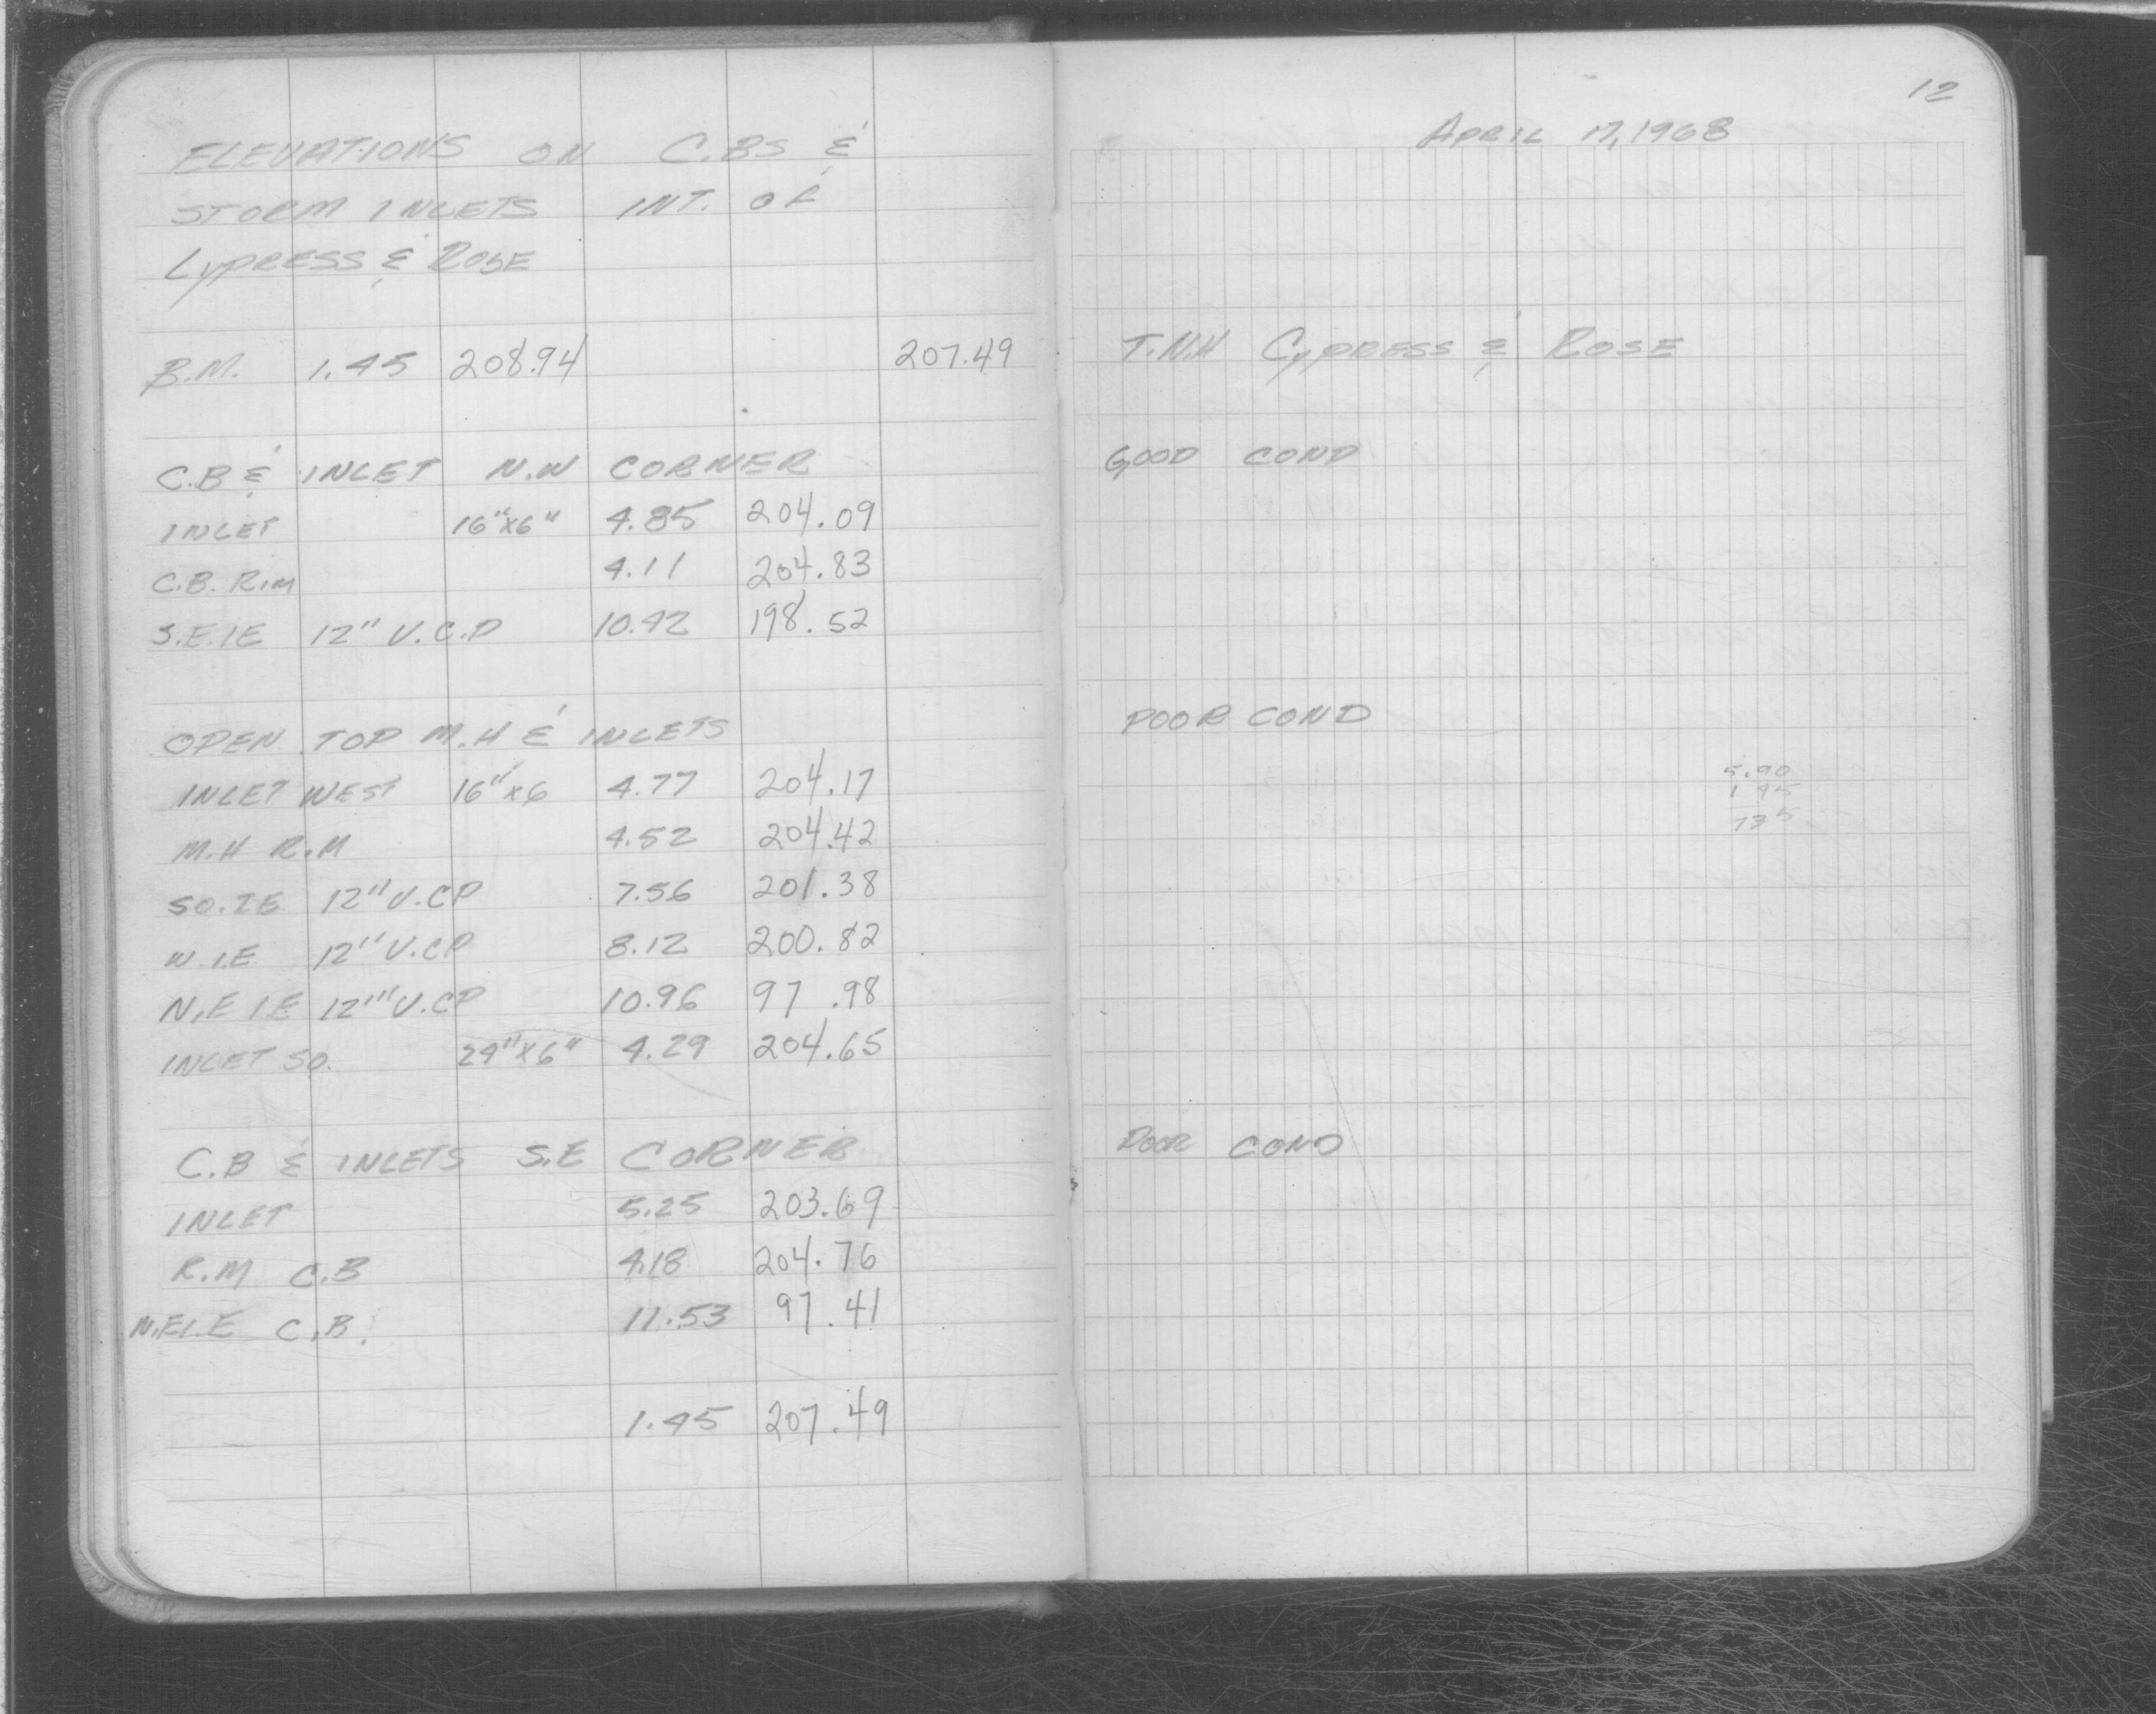 ELEVATIONS ON C.BS &
STORM INLETS INT. OF
CYPRESS & ROSE
B.M. 1.45 208.94 207.49
C.B & INLET N.W CORNER
INLET 16"x6" 4.85 204.09
C.B. RIM 4.11 204.83
S.E. IE 12" V.C.P 10.42 198.52
OPEN TOP M.H & INLETS
INLET WEST 16"x6 4.77 204.17
M.H RIM 4.52 204.42
SO. IE 12" V.CP 7.56 201.38
W I.E. 12" V.CP 8.12 200.82
N.E I.E 12"" V.CP 10.96 97.98
INLET SO. 24"x6" 4.29 204.65
C.B & INLETS S.E CORNER
INLET 5.25 203.69
RIM C.B 4.18 204.76
N.E I.E C.B. 11.53 97.41
1.45 207.49
12
APRIL 17, 1968
T.N.H CYPRESS & ROSE
GOOD COND
POOR COND
5.90
1 45
735
POOR COND